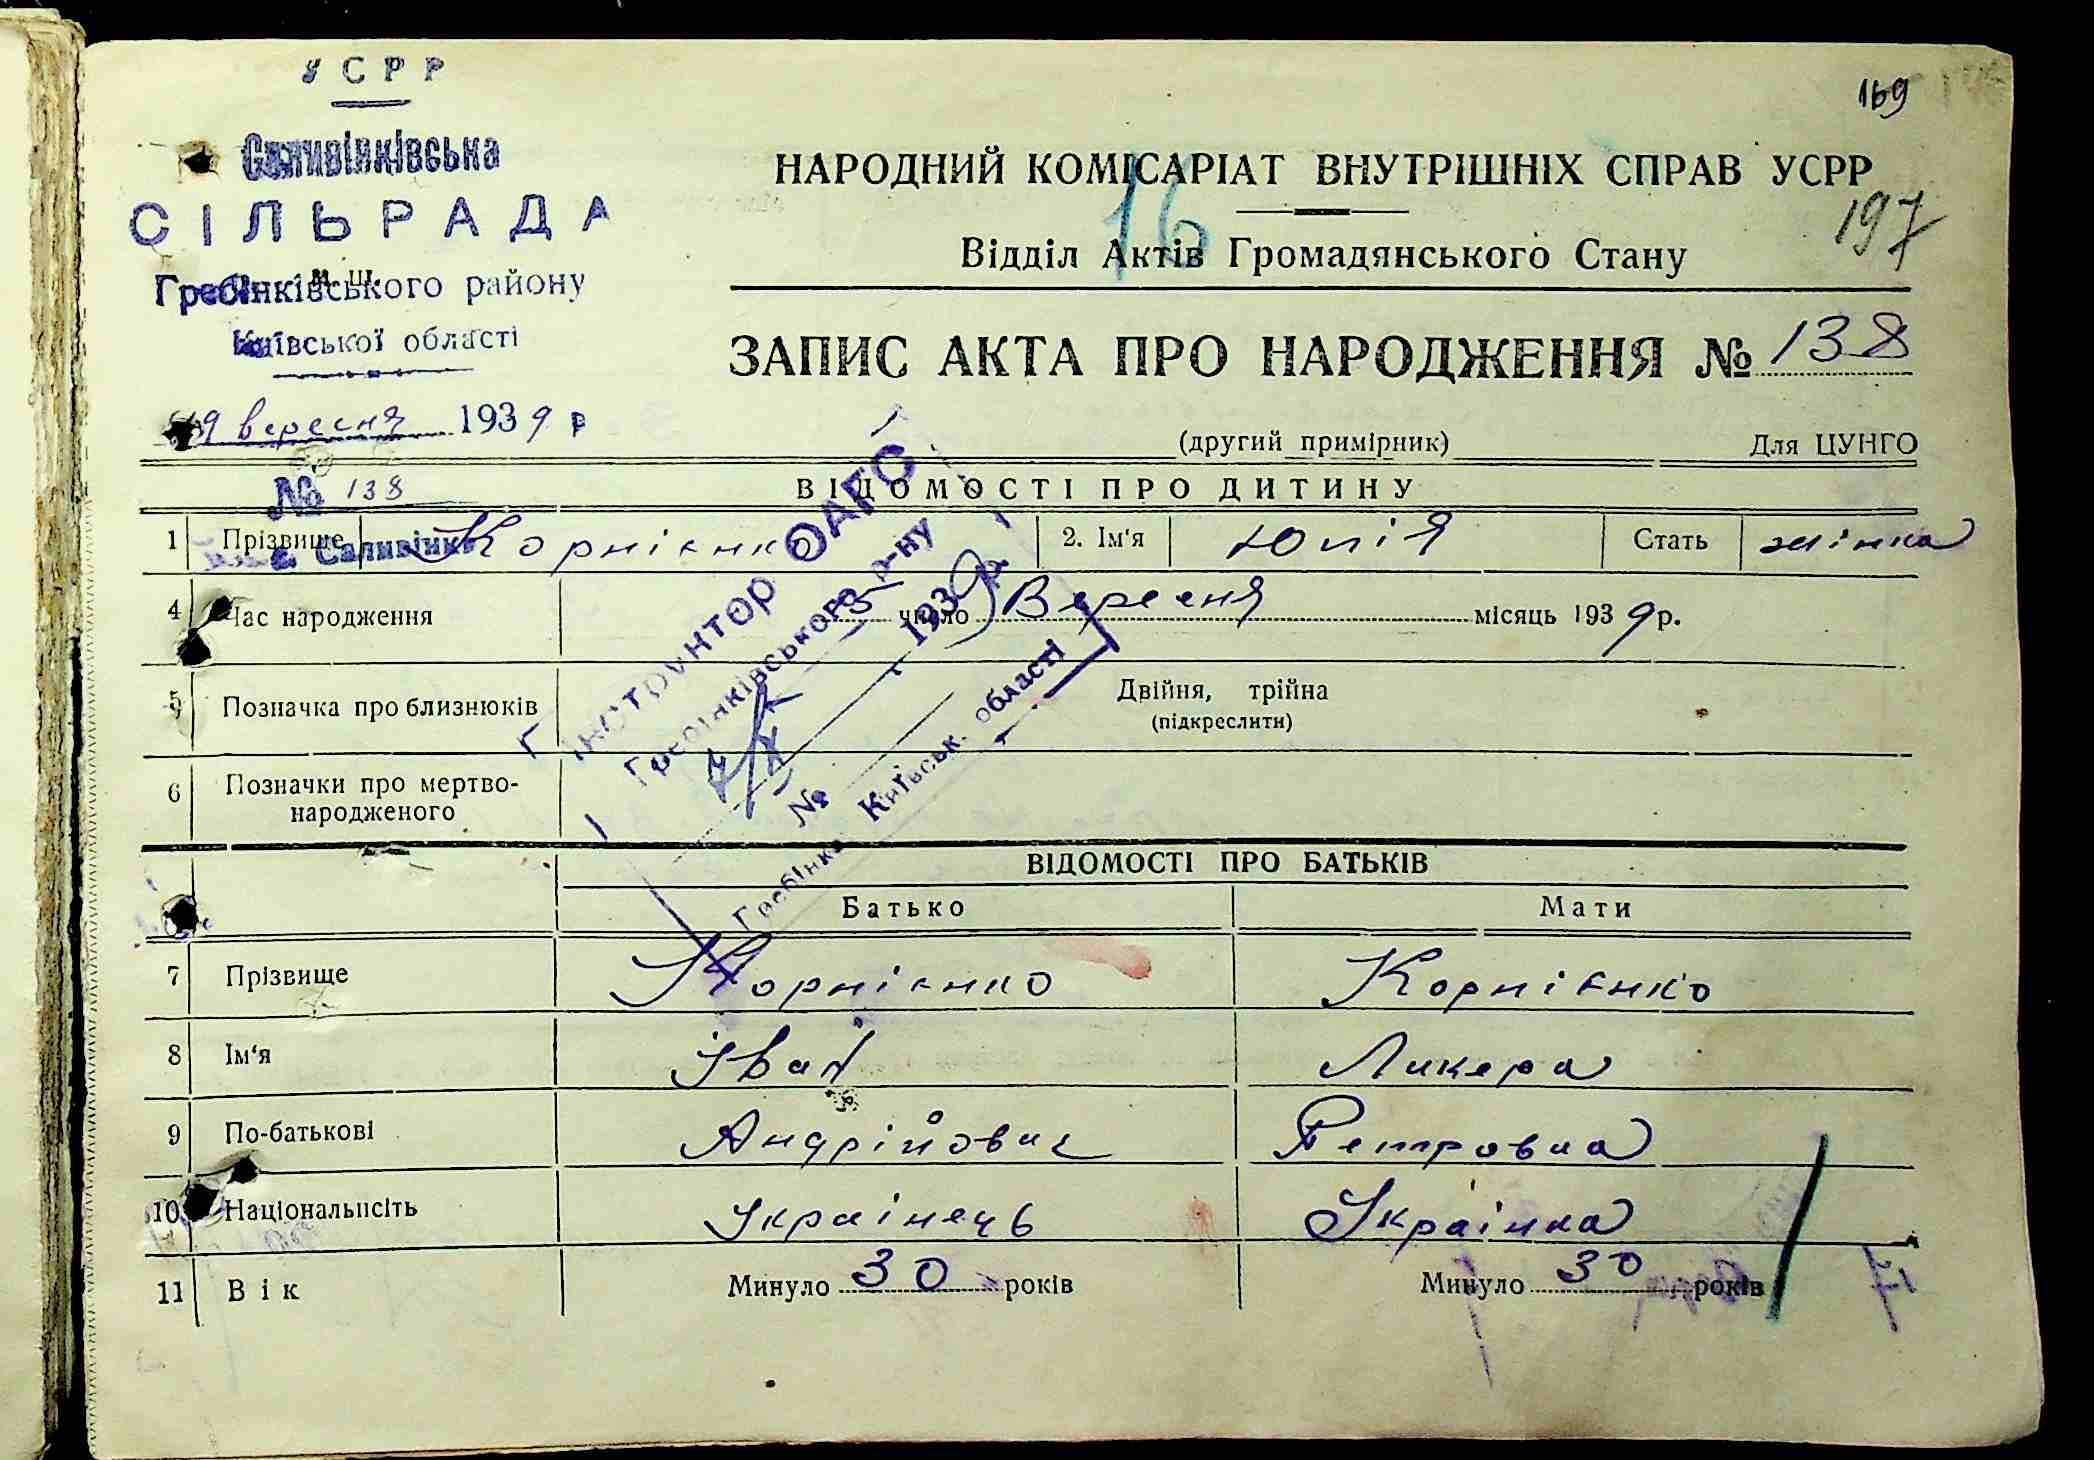 169
УСРР
Саливінківська
СІЛЬРАДА
м. ш.
Гребінківського району
Київської області
9 вересня 1939 р
№ 138
с. Саливінки
НАРОДНИЙ КОМІСАРІАТ ВНУТРІШНІХ СПРАВ УСРР
16
197
Відділ Актів Громадянського Стану
ЗАПИС АКТА ПРО НАРОДЖЕННЯ № 138
(другий примірник) Для ЦУНГО
ВІДОМОСТІ ПРО ДИТИНУ
1 Прізвище Корнієнко 2. Ім'я Юлія Стать жінка
4 Час народження 5 число Вересня місяць 1939 р.
5 Позначка про близнюків Двійня, трійна
(підкреслити)
6 Позначки про мертво-
народженого
Інструктор ОАГС
Гребінківського р-ну
1939 р.
№
Гребінка Київськ. області
ВІДОМОСТІ ПРО БАТЬКІВ
Батько Мати
7 Прізвище Корнієнко Корнієнко
8 Ім'я Іван Ликера
9 По-батькові Андрійович Петровна
10 Національність Украінець Украінка
11 Вік Минуло 30 років Минуло 30 років